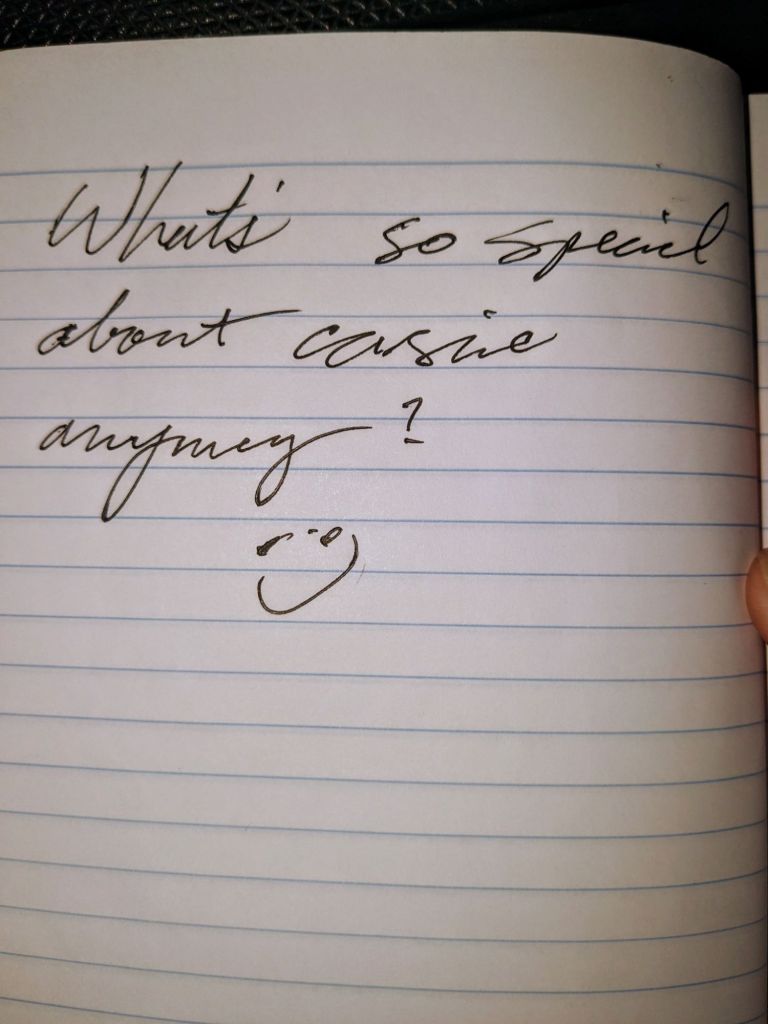 What's so special
about casie
anyway?